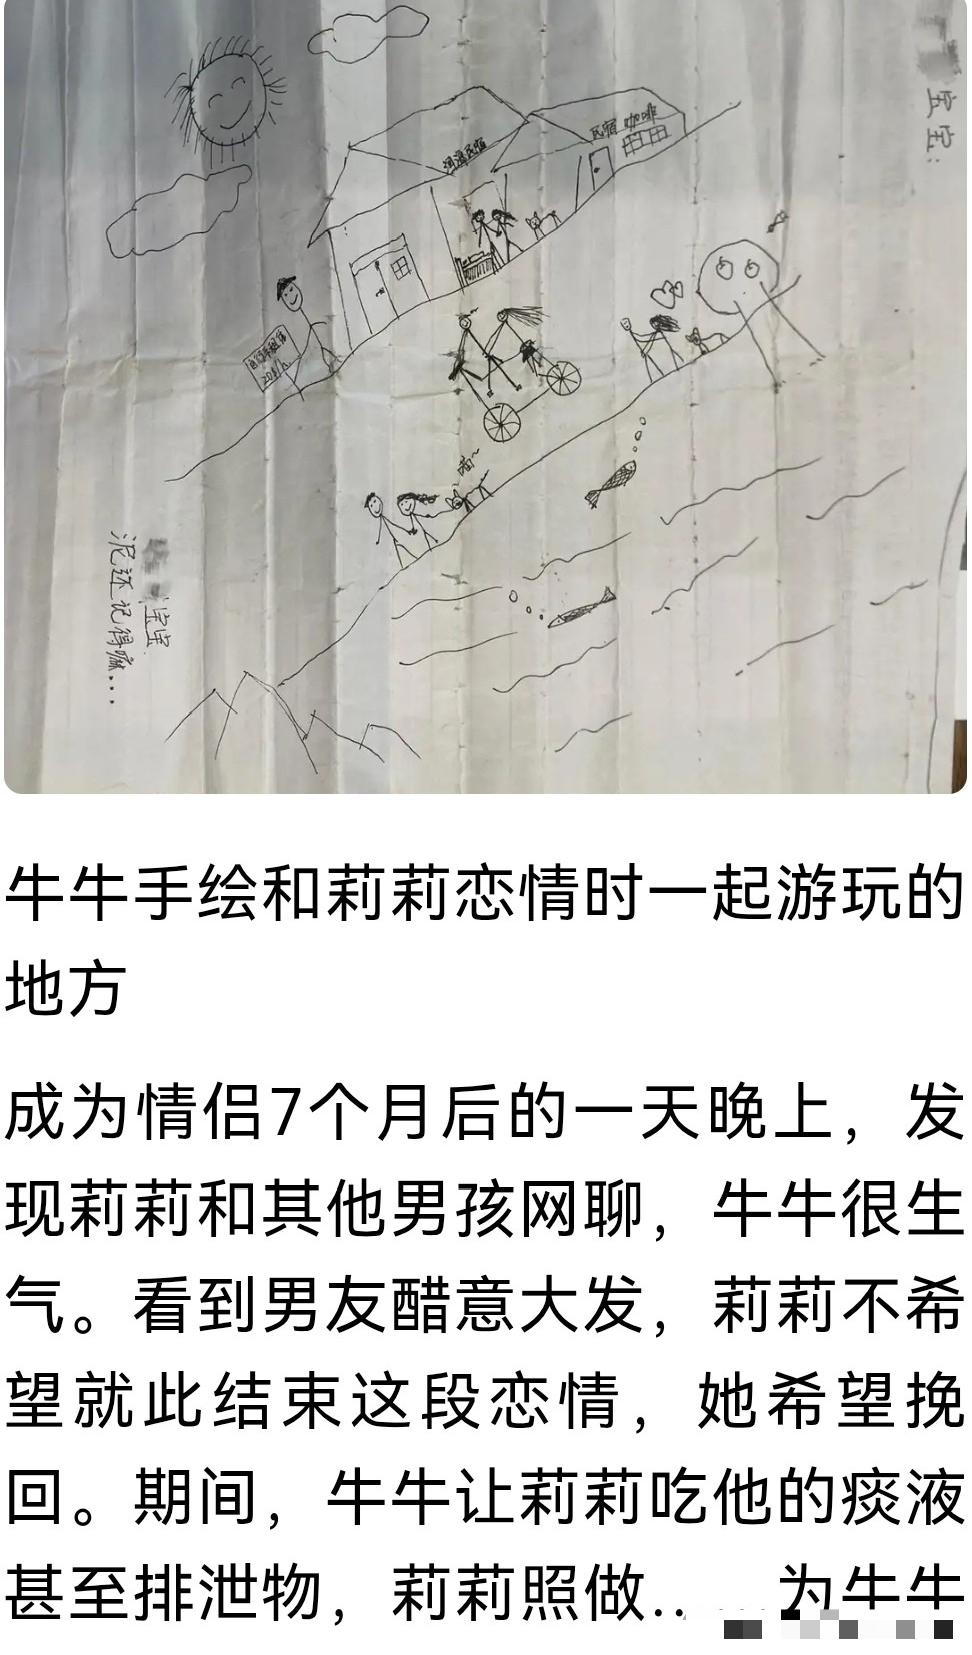 宝宝:
民宿 咖啡
洱海民宿
自行车租借
20/h
喵~
宝宝
泥还记得嘛...
牛牛手绘和莉莉恋情时一起游玩的
地方
成为情侣7个月后的一天晚上，发
现莉莉和其他男孩网聊，牛牛很生
气。看到男友醋意大发，莉莉不希
望就此结束这段恋情，她希望挽
回。期间，牛牛让莉莉吃他的痰液
甚至排泄物，莉莉照做……为牛牛